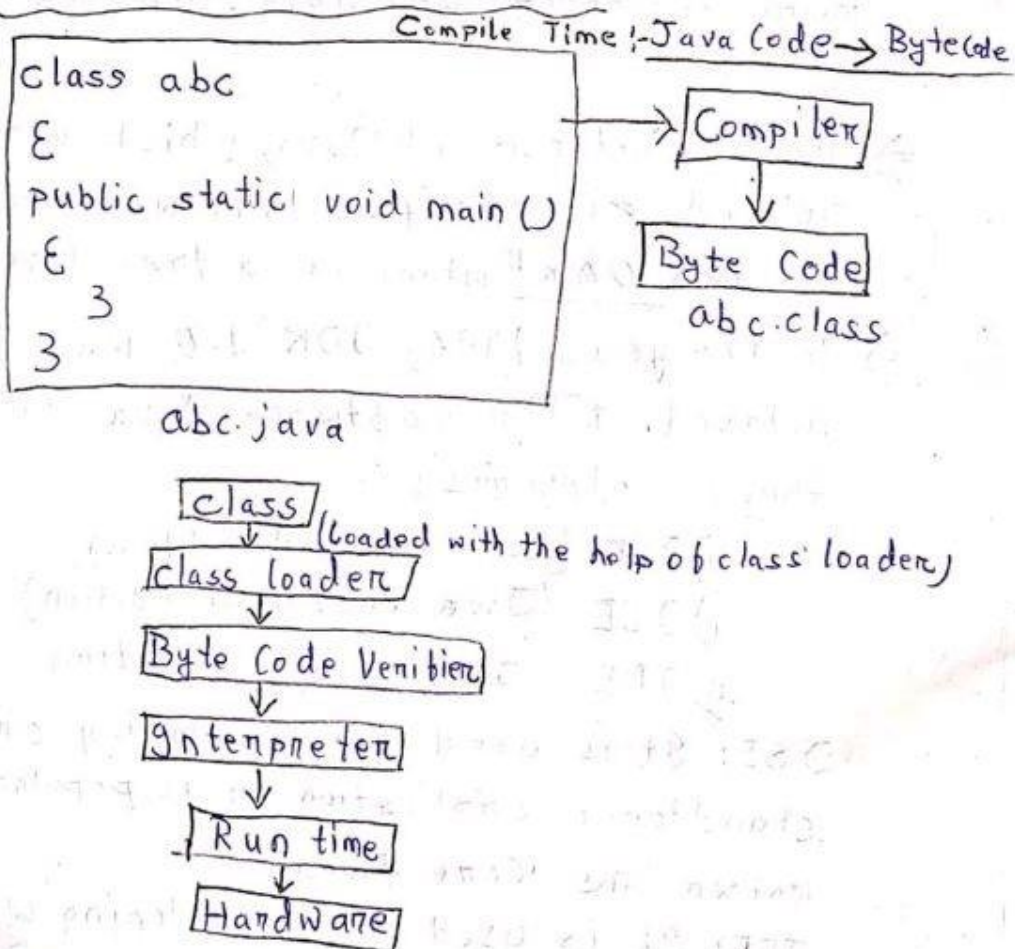 Compile Time :- Java Code → ByteCode
class abc
{
public static void main ()
{
}
}
abc.java
Compiler
Byte Code
abc.class
class
(Loaded with the help of class loader)
class loader
Byte Code Verifier
Interpreter
Run time
Hardware